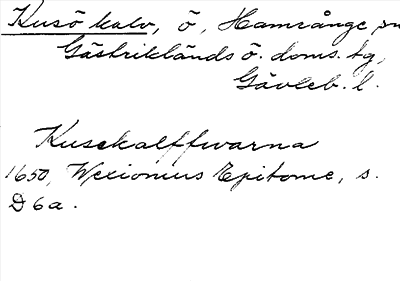 Kusö kalv, ö, Hamrånge sn
Gästriklands ö. doms. tg,
Gävleb. l.
Kusekalffwarna
1650, Wexionius Epitome, s.
D6a.